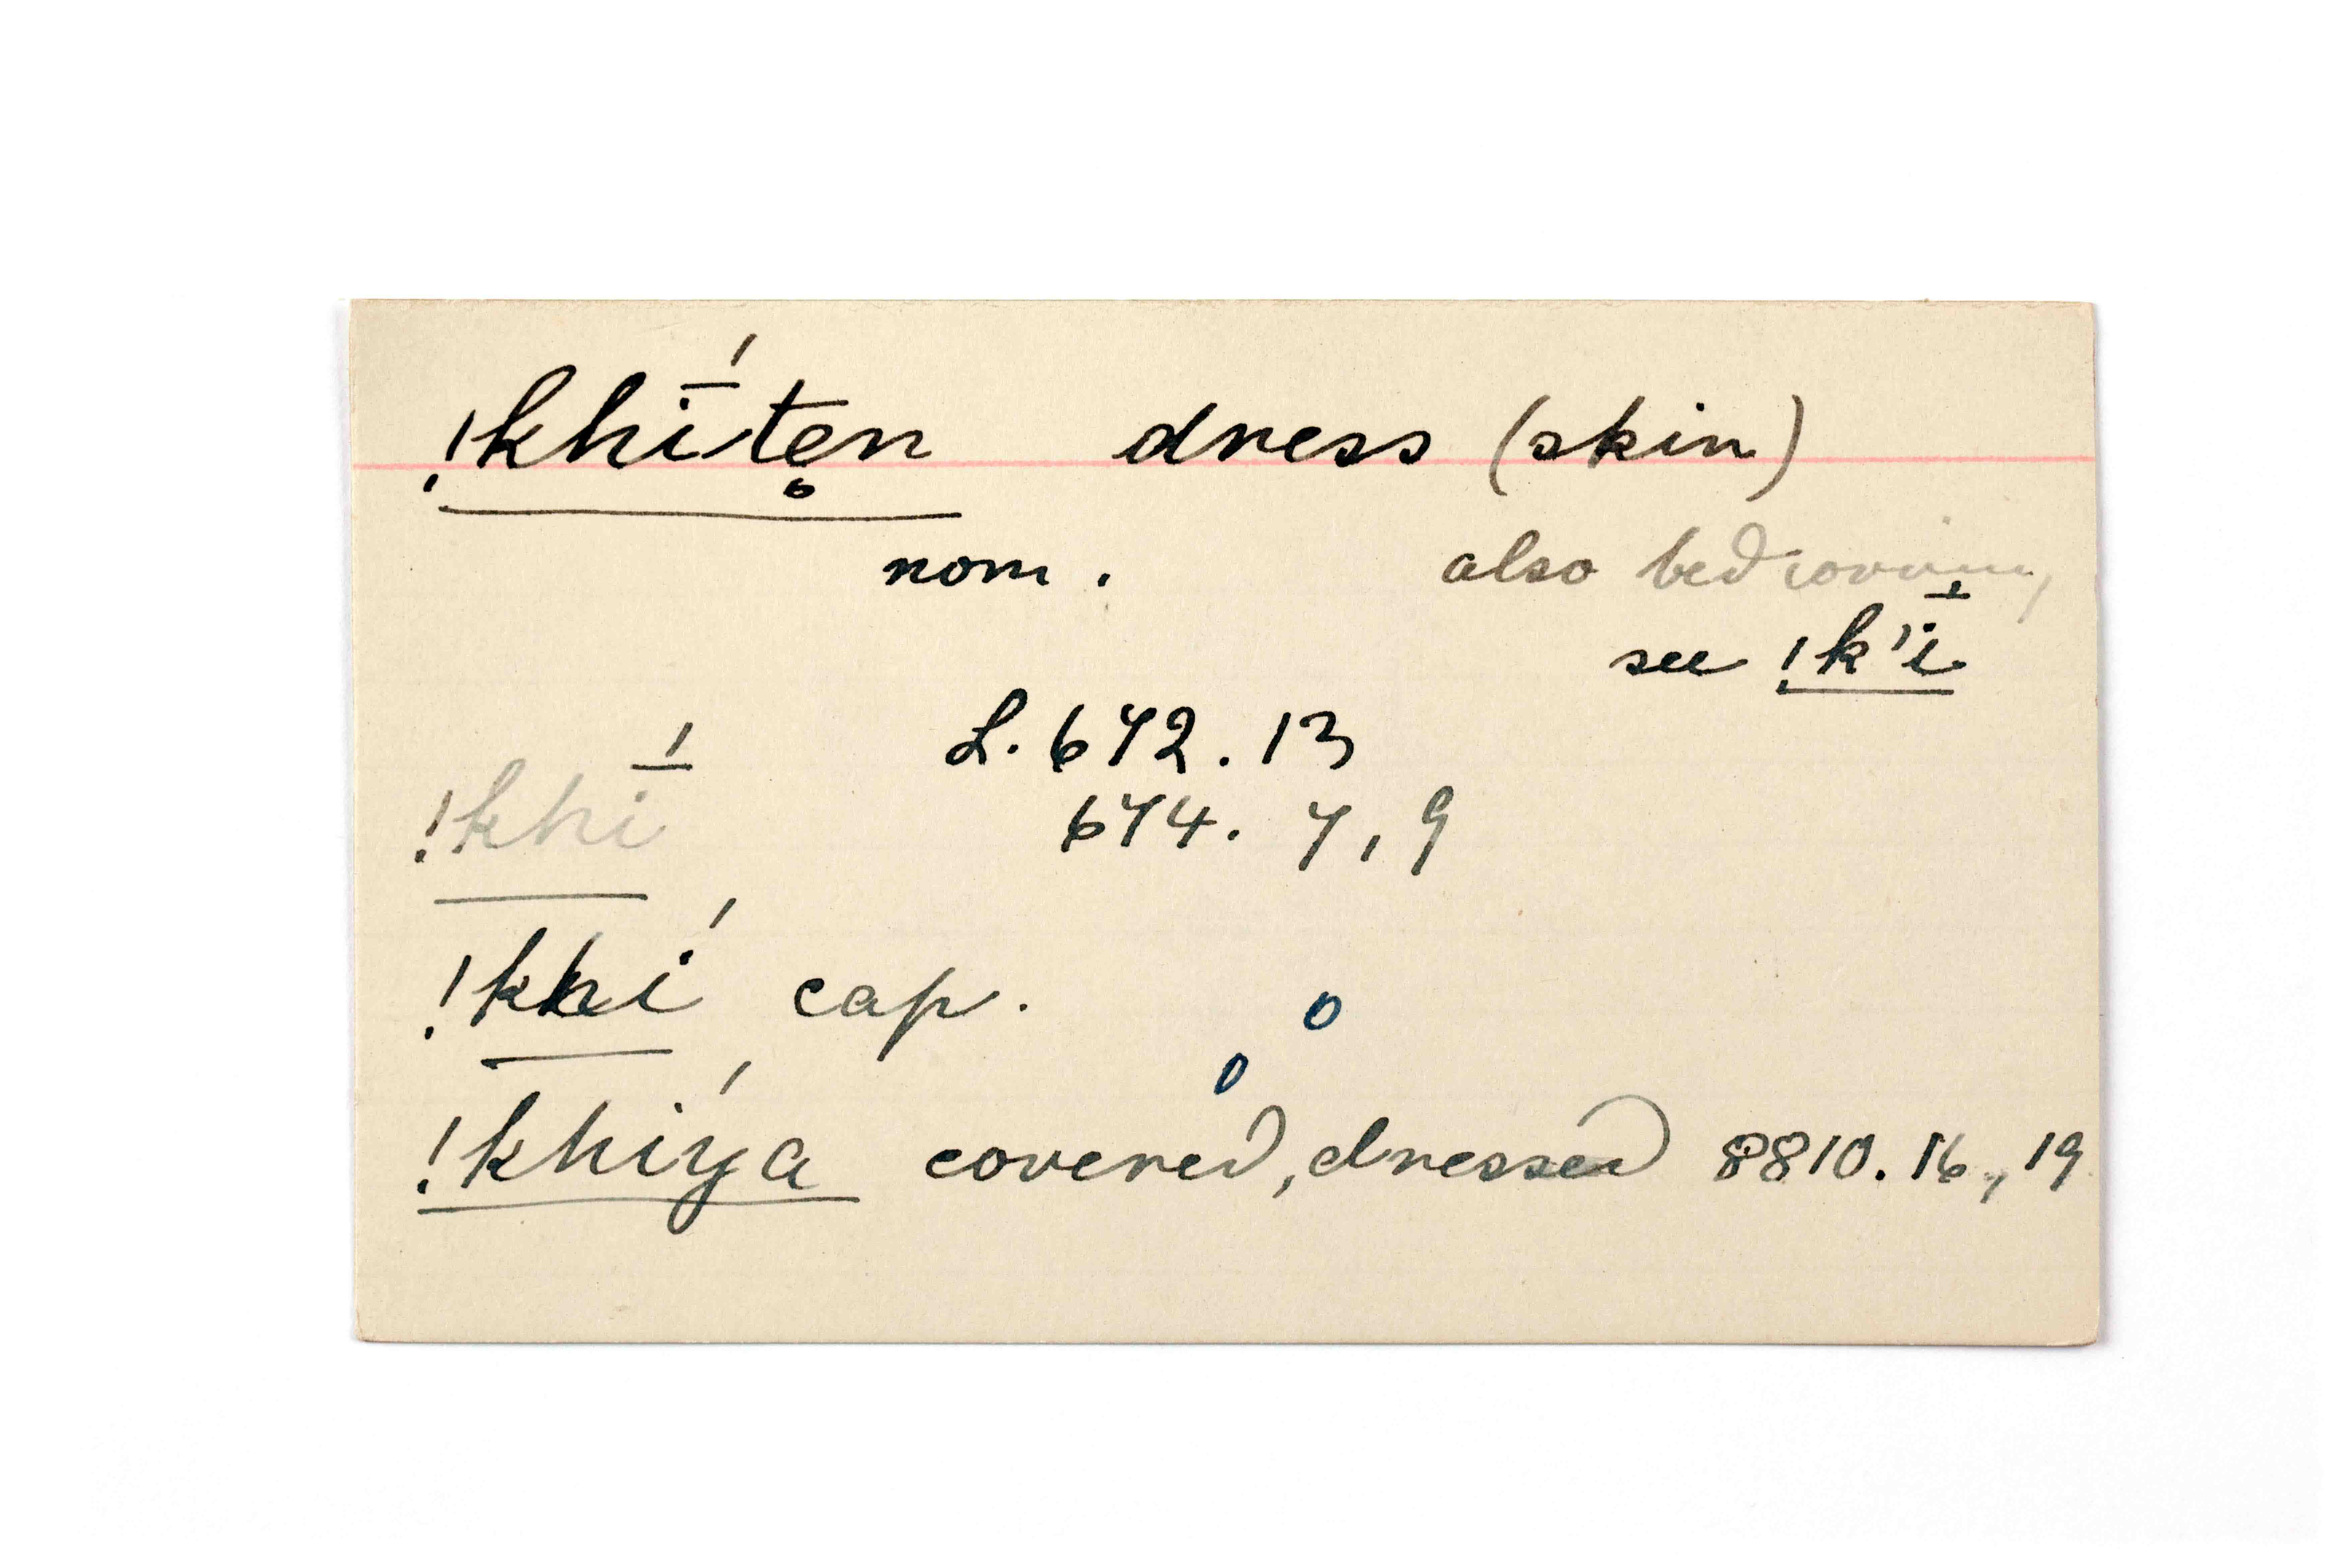 !khī́tẹn dress (skin)
nom. also bed covering
see !k'ī
L. 672.13
!khī́ 674. 7, 9
!khí cap.
!khíya covered, dressed 8810.16, 19